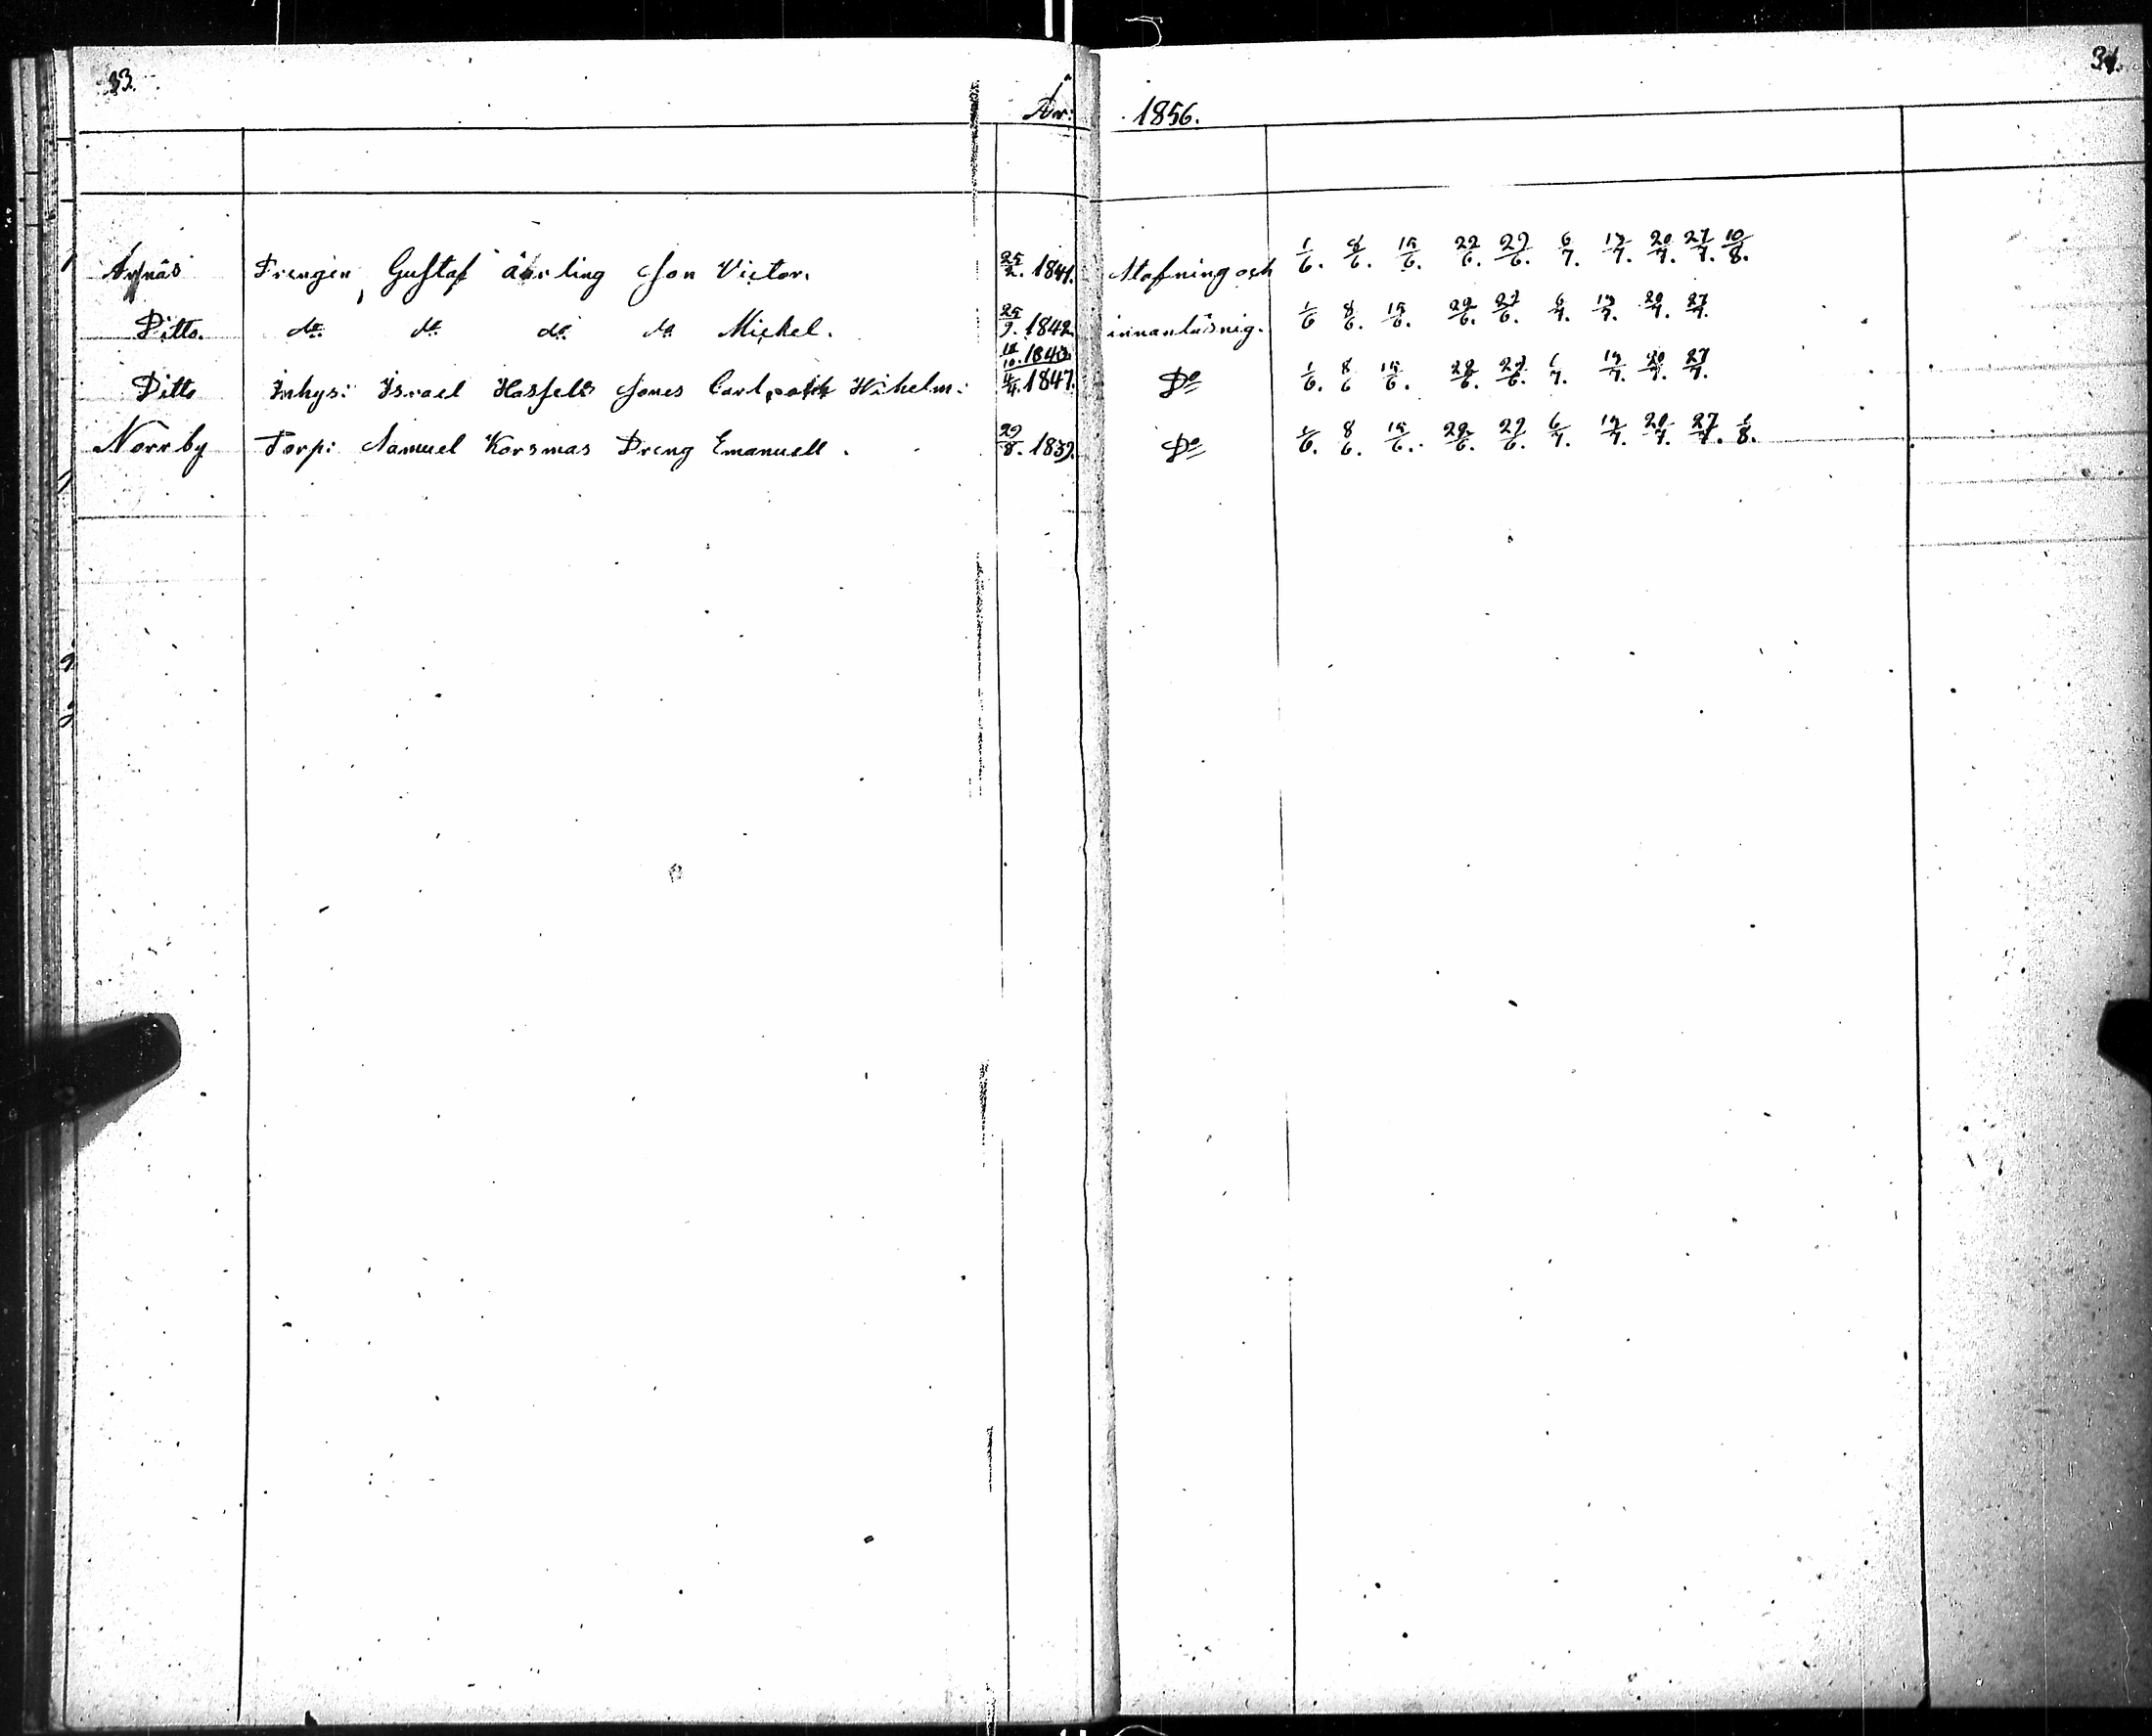 33.
34.
År: 1856.
Årnäs Drengen Gustaf äärling Son Victor. 25/2. 1841. Stafning och 1/6. 8/6. 15/6. 22/6. 29/6. 6/7. 13/7. 20/7. 27/7. 10/8.
Ditto. do do do do Mickel. 25/9. 1842. innanläsnig. 1/6 8/6. 15/6. 22/6. 29/6. 6/7. 13/7. 20/7. 27/7.
1843.
Ditto Inhys: Israel Hasfelts Sones Carl och Wihelm: 4/4. 1847. Do 1/6. 8/6 15/6. 22/6. 29/6. 6/7. 13/7. 20/7. 27/7.
Norrby Torp: Samuel Korsmas Dreng Emanuell. 29/8. 1839. Do 1/6. 8/6. 15/6. 22/6. 29/6. 6/7. 13/7. 20/7. 27/7. /8.